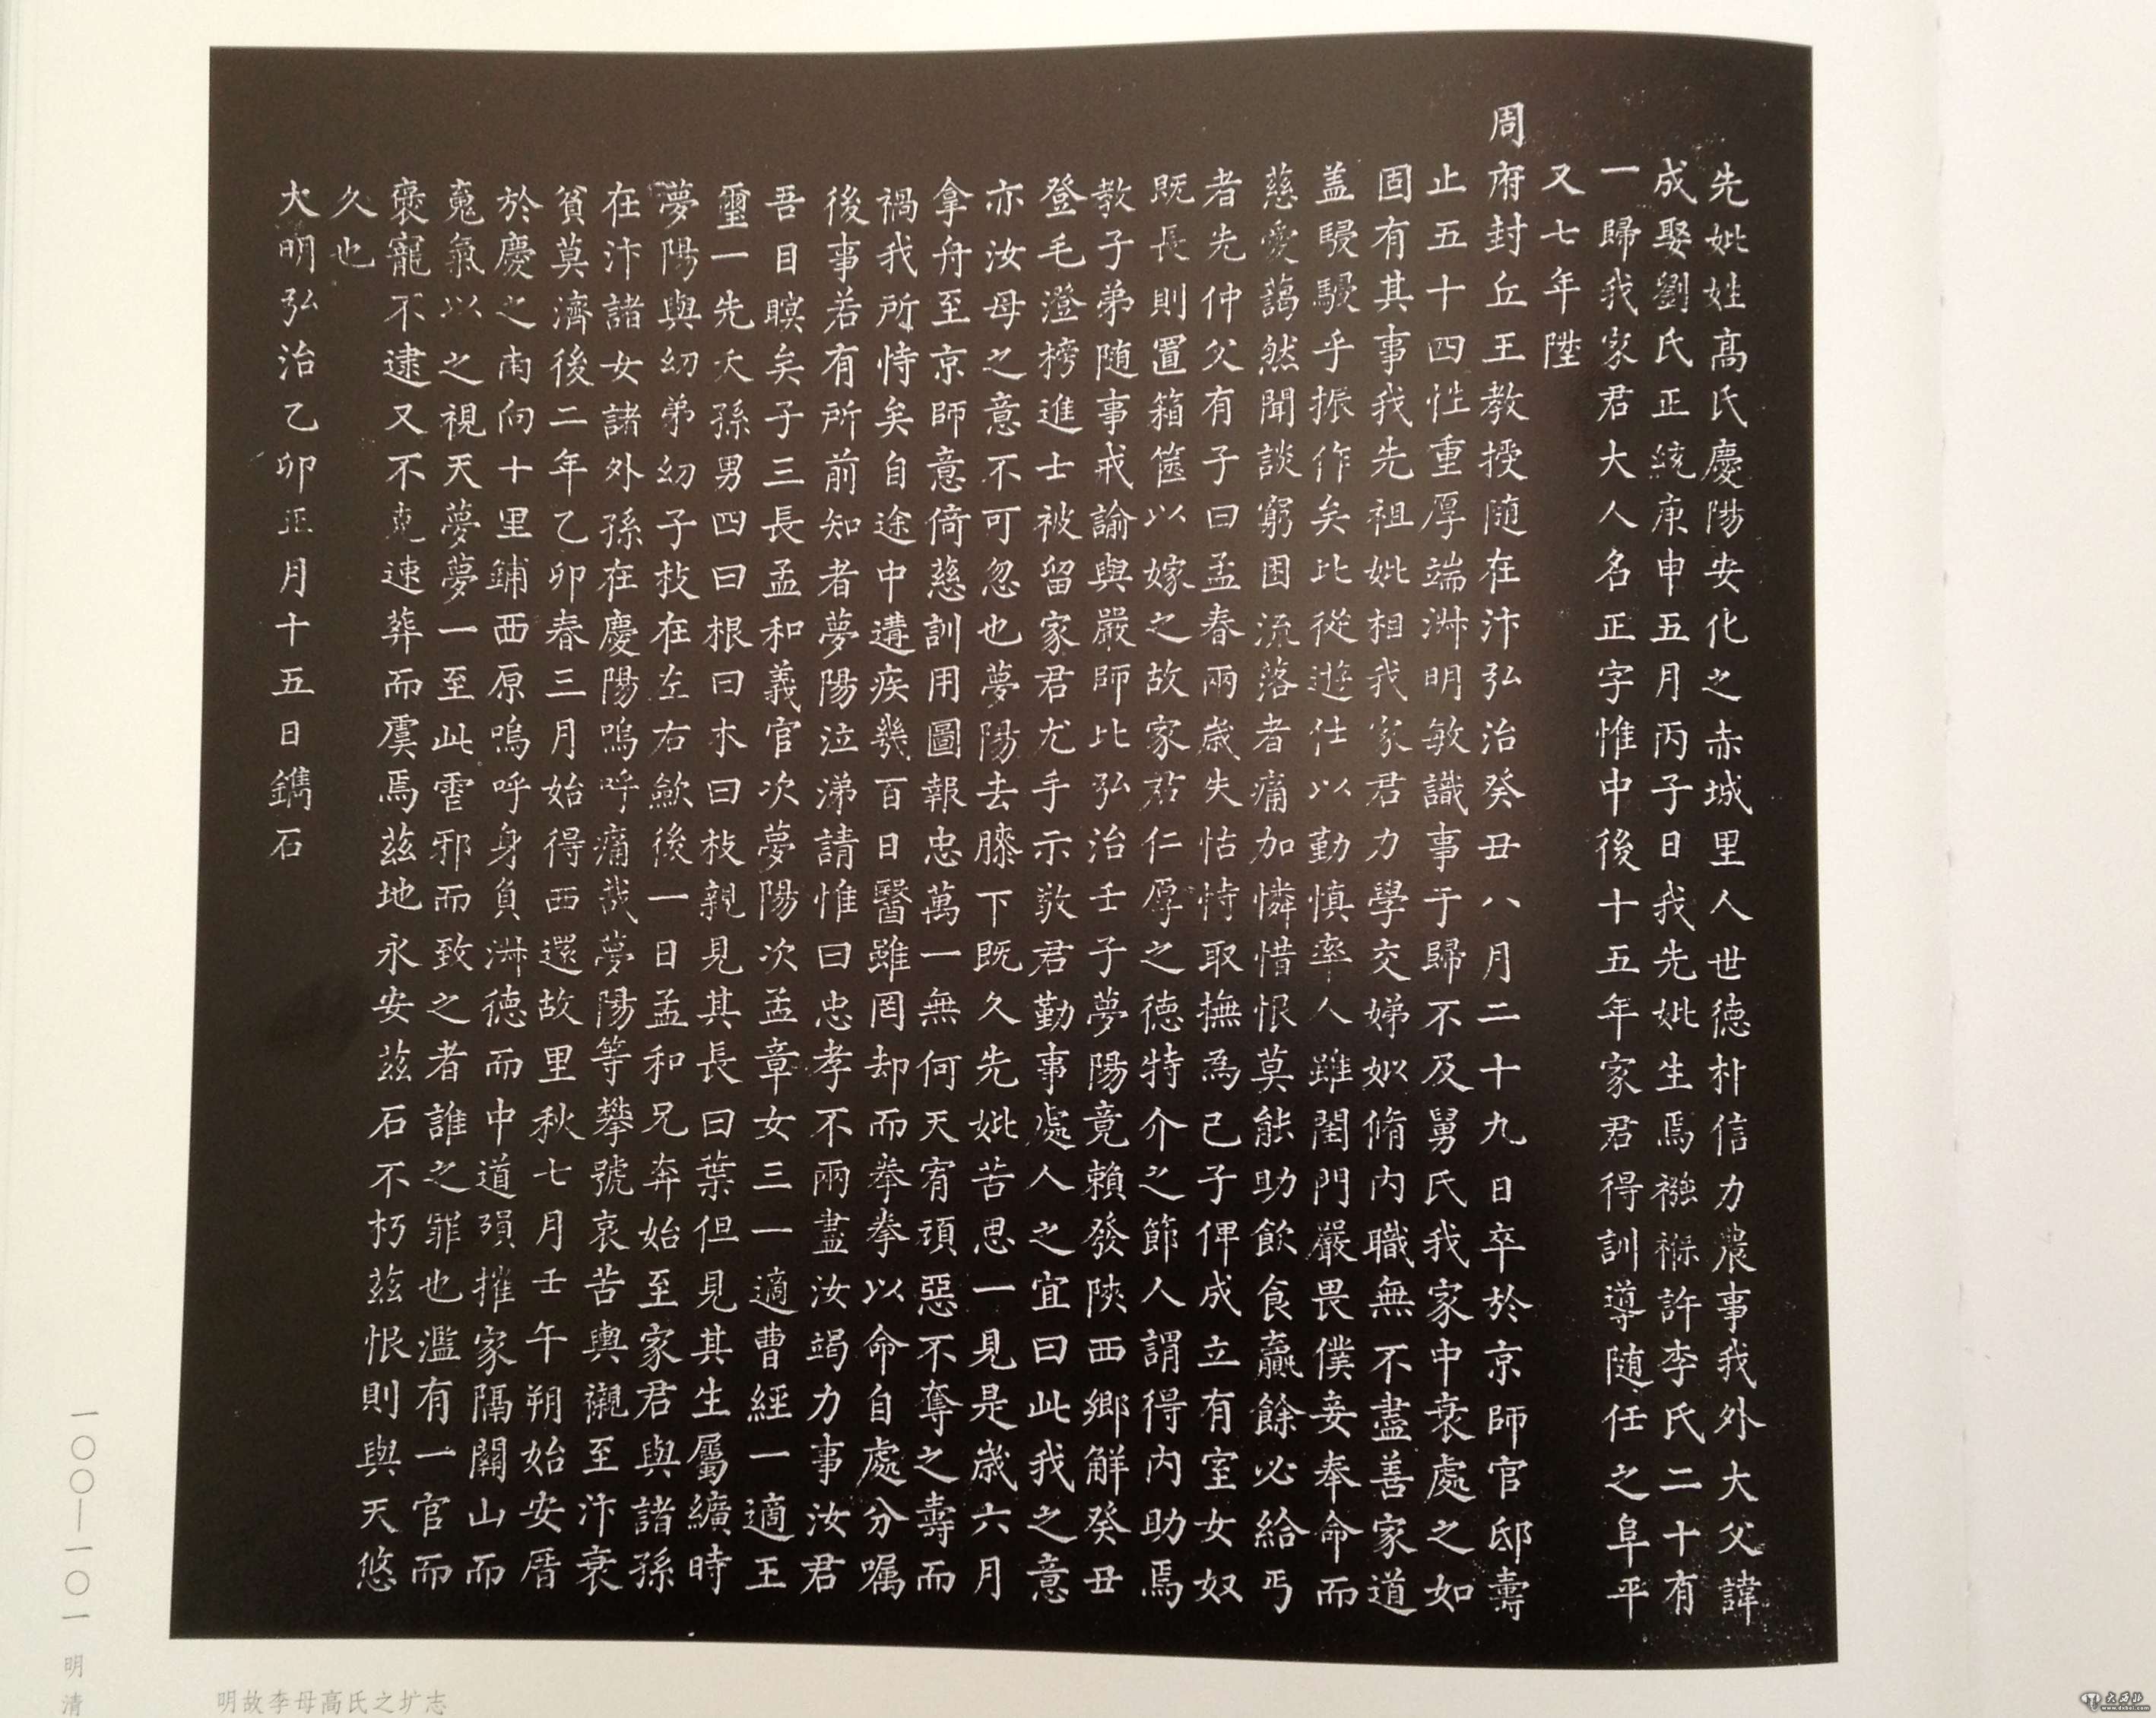 先妣姓高氏慶陽安化之赤城里人世德朴信力農事我外大父諱
成娶劉氏正統庚申五月丙子日我先妣生焉襁褓許李氏二十有
一歸我家君大人名正字惟中後十五年家君得訓導随任之阜平
又七年陞
周府封丘王教授随在汴弘治癸丑八月二十九日卒於京師官邸壽
止五十四性重厚端淋明敏識事于歸不及舅氏我家中衰處之如
固有其事我先祖妣相我家君力學交娣姒脩内職無不盡善家道
盖駸駸乎振作矣比從遊仕以勤慎率人雖閨門嚴畏僕妾奉命而
慈愛藹然聞談窮困流落者痛加憐惜恨莫能助飲食贏餘必給丐
者先仲父有子曰孟春兩歲失怙恃取撫為己子俾成立有室女奴
既長則置箱篋以嫁之故家君仁厚之德特介之節人謂得内助焉
教子弟随事戒諭與嚴師比弘治壬子夢陽竟賴發陝西鄉解癸丑
登毛澄榜進士被留家君尤手示敬君勤事處人之宜曰此我之意
亦汝母之意不可忽也夢陽去膝下既久先妣苦思一見是歲六月
拿舟至京師意倚慈訓用圖報忠萬一無何天宥頑惡不奪之壽而
禍我所恃矣自途中遘疾幾百日醫雖罔却而拳拳以命自處分嘱
後事若有所前知者夢陽泣涕請惟曰忠孝不兩盡汝竭力事汝君
吾目瞑矣子三長孟和義官次夢陽次孟章女三一適曹經一適王
璽一先夭孫男四曰根曰木曰枝親見其長曰葉但見其生屬纊時
夢陽與幼弟幼子枝在左右歛後一日孟和兄奔始至家君與諸孫
在汴諸女諸外孫在慶陽嗚呼痛哉夢陽等攀號哀苦輿櫬至汴衰
貧莫濟後二年乙卯春三月始得西還故里秋七月壬午朔始安厝
於慶之南向十里鋪西原嗚呼身負淋德而中道殞摧家隔關山而
䰟氣以之視天夢夢一至此霅邪而致之者誰之罪也濫有一官而
褒寵不逮又不克速葬而虞焉茲地永安茲石不朽茲恨則與天悠
久也
大明弘治乙卯正月十五日鐫石
一〇〇—一〇一 明 清
明故李母高氏之圹志
大西北
www.dxbei.com